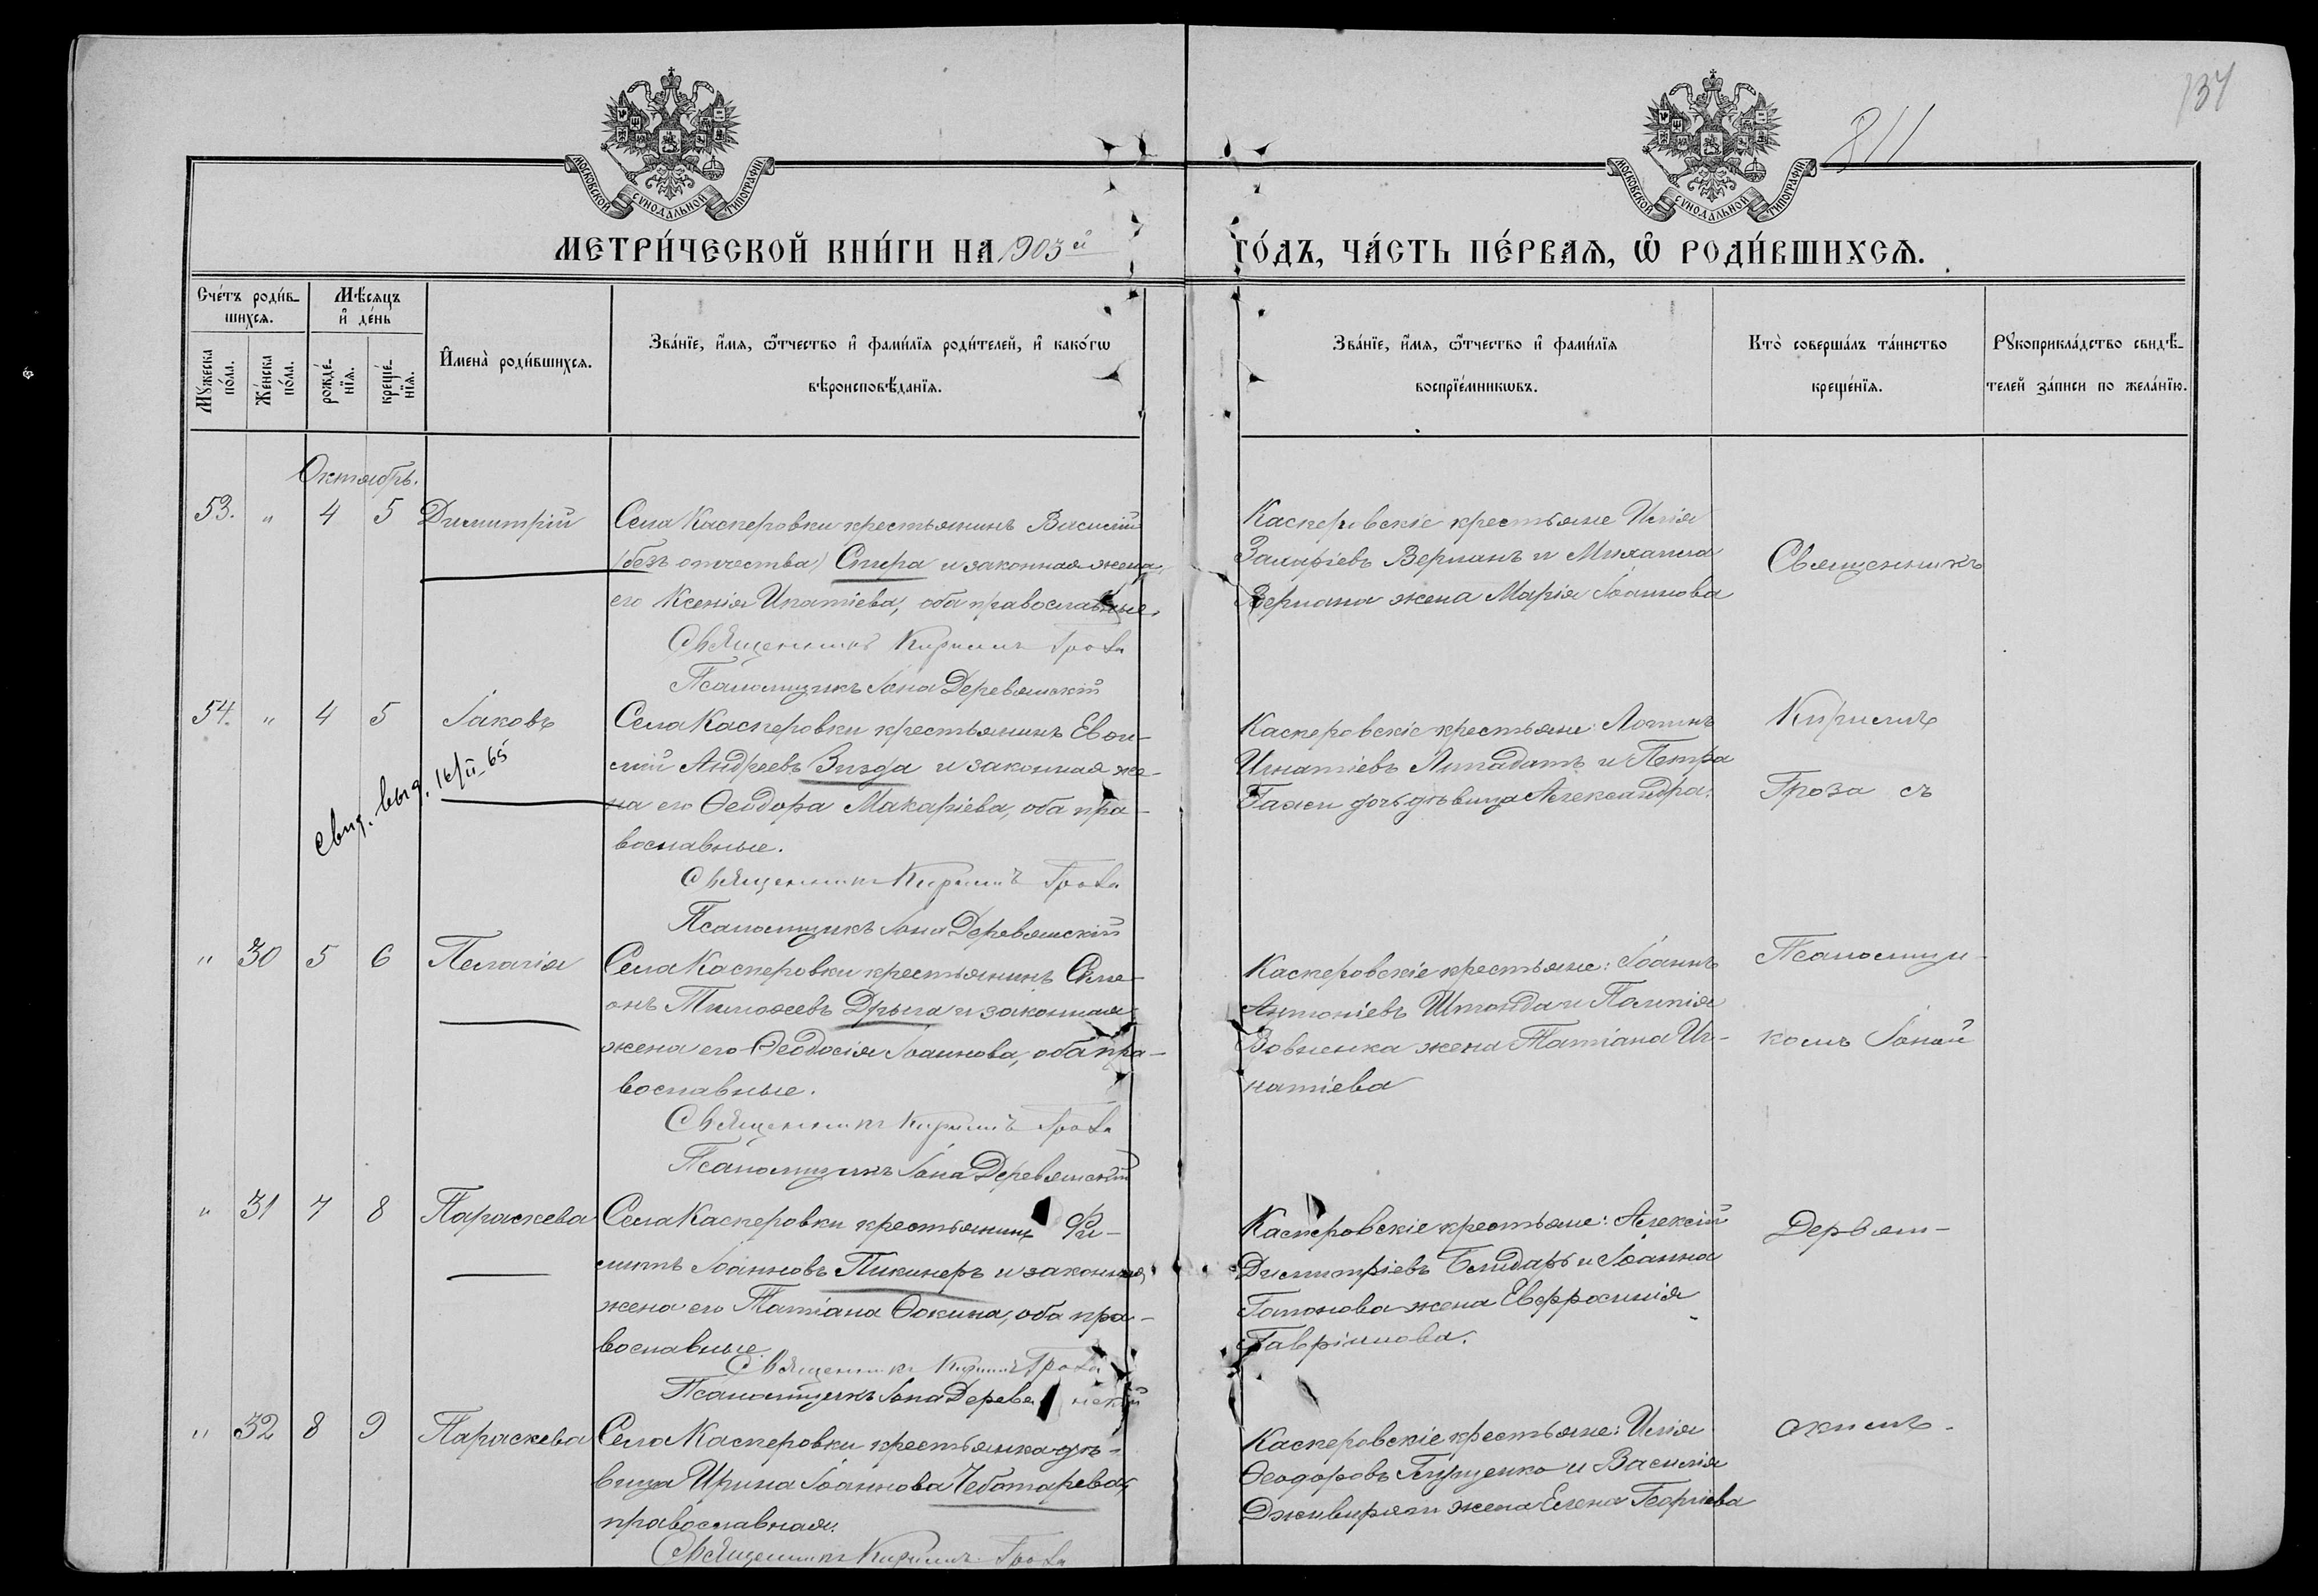 134
811
МОСКОВСКОЙ СѴНОДАЛЬНОЙ ТИПОГРАФІИ
МОСКОВСКОЙ СѴНОДАЛЬНОЙ ТИПОГРАФІИ
МЕТРИ́ЧЕСКОЙ КНИ́ГИ НА 1903й ГО́ДЪ, ЧА́СТЬ ПЕ́РВАѦ, Ѡ҆ РОДИ́ВШИХСѦ.
Сче́тъ роди́в-
шихсѧ.
Мѣ́сѧцъ
и҆ де́нь
Мꙋ́жеска
по́ла.
Же́нска
по́ла.
рожде́-
нїѧ.
креще́-
нїѧ.
И҆мена̀ роди́вшихсѧ.
Зва́нїе, и҆́мѧ, ѻ҆́тчество и҆ фами́лїѧ роди́телей, и҆ како́гѡ
вѣроисповѣ́данїѧ.
Зва́нїе, и҆́мѧ, ѻ҆́тчество и҆ фами́лїѧ
воспрїе́мникѡвъ.
Кто̀ соверша́лъ та́инство
креще́нїѧ.
Рꙋкоприкла́дство свидѣ́-
телей за́писи по жела́нїю.
Октябрь.
53. " 4 5 Димитрій
Села Касперовки крестьянинъ Василій
(безъ отчества) Спира и законная жена
его Ксенія Ипатіева, оба православные.
Священникъ Кириллъ Гроза
Псаломщикъ Іона Деревянскій
Касперовскіе крестьяне Илія
Захаріевъ Верланъ и Михаила
Верлана жена Марія Іоаннова
Священникъ
54. " 4 5 Іаковъ
свид. выд. 16/II-65
Села Касперовки крестьянинъ Евфи-
мій Андреевъ Звизда и законная же-
на его Ѳеодора Макаріева, оба пра-
вославные.
Священникъ Кириллъ Гроза
Псаломщикъ Іона Деревянскій
Касперовскіе крестьяне: Логинъ
Игнатіевъ и Петра
дочь дѣвица Александра.
Кириллъ
Гроза съ
" 30 5 6 Пелагія
Села Касперовки крестьянинъ Симе-
онъ Тимоѳеевъ Дрыга и законная
жена его Ѳеодосія Іоаннова, оба пра-
вославные.
Священникъ Кириллъ Гроза
Псаломщикъ Іона Деревянскій
Касперовскіе крестьяне: Іоаннъ
Антоніевъ Штонда и
Вовченка жена Татіана Иг-
натіева
Псаломщи-
комъ Іоной
" 31 7 8 Параскева
Села Касперовки крестьянинъ Фи-
липъ Іоанновъ Пикинеръ и законная
жена его Татіана Ѳокина, оба пра-
вославные.
Священникъ Кириллъ Гроза
Псаломщикъ Іона Деревянскій
Касперовскіе крестьяне: Алексій
Димитріевъ и Іоанна
жена Евфросинія
Гавріилова.
Дервян-
" 32 8 9 Параскева
Села Касперовки крестьянка дѣ-
вица Ирина Іоаннова Чеботарева,
православная.
Священникъ Кириллъ Гроза
Касперовскіе крестьяне: Илія
Ѳеодоровъ и Василія
жена Елена Георгіева
скимъ.